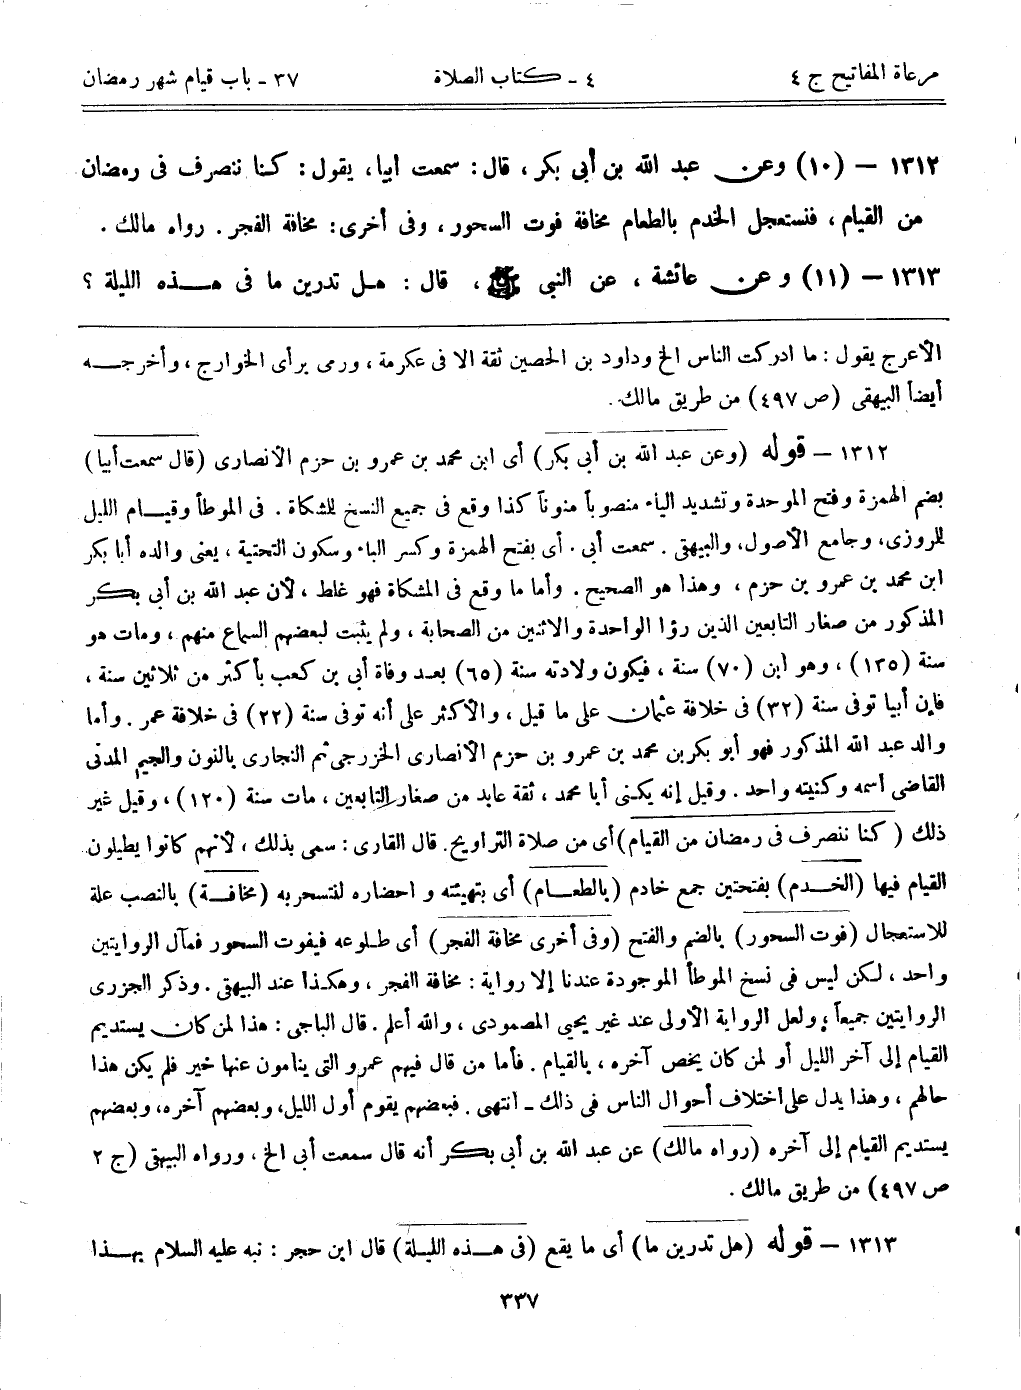 مرعاة المفاتيح ج ٤ ٤ - كتاب الصلاة ٣٧ - باب قيام شهر رمضان
١٣١٢ – (١٠) وعن عبد الله بن أبى بكر، قال: سمعت أبيا، يقول: كنا ننصرف فى رمضان
من القيام، فنستعجل الخدم بالطعام مخافة فوت السحور، وفى أخرى: مخافة الفجر. رواه مالك.
١٣١٣ – (١١) وعن عائشة، عن النبى ﷺ، قال: هل تدرين ما فى هذه الليلة؟
الأعرج يقول: ما ادركت الناس الخ وداود بن الحصين ثقة الا فى عكرمة، ورمى برأى الخوارج، وأخرجه
أيضاً البيهقى (ص ٤٩٧) من طريق مالك.
١٣١٢ – قوله (وعن عبد الله بن أبى بكر) أى ابن محمد بن عمرو بن حزم الأنصارى (قال سمعت أبيا)
بضم الهمزة وفتح الموحدة وتشديد الياء منصوباً منوناً كذا وقع فى جميع النسخ للشكاة. فى الموطأ وقيام الليل
للروزى، وجامع الأصول، والبيهقى. سمعت أبى. أى بفتح الهمزة وكسر الباء وسكون التحتية، يعنى والده أبا بكر
ابن محمد بن عمرو بن حزم، وهذا هو الصحيح. وأما ما وقع فى المشكاة فهو غلط، لأن عبد الله بن أبى بكر
المذكور من صغار التابعين الذين رؤا الواحدة والاثنين من الصحابة، ولم يثبت لبعضهم السماع منهم، ومات هو
سنة (١٣٥)، وهو ابن (٧٠) سنة، فيكون ولادته سنة (٦٥) بعد وفاة أبى بن كعب بأكثر من ثلاثين سنة،
فإن أبيا توفى سنة (٣٢) فى خلافة عثمان على ما قيل، والأكثر على أنه توفى سنة (٢٢) فى خلافة عمر. وأما
والد عبد الله المذكور فهو أبو بكر بن محمد بن عمرو بن حزم الأنصارى الخزرجى ثم النجارى بالنون والجيم المدنى
القاضى أسمه وكنيته واحد. وقيل إنه يكنى أبا محمد، ثقة عابد من صغار التابعين، مات سنة (١٢٠)، وقيل غير
ذلك (كنا ننصرف فى رمضان من القيام) أى من صلاة التراويح. قال القارى: سمى بذلك، لأنهم كانوا يطيلون
القيام فيها (الخدم) بفتحتين جمع خادم (بالطعام) أى بتهيئته و احضاره لنتسحر به (مخافة) بالنصب علة
للاستعجال (فوت السحور) بالضم والفتح (وفى أخرى مخافة الفجر) أى طلوعه فيفوت السحور فمآل الروايتين
واحد، لكن ليس فى نسخ الموطأ الموجودة عندنا إلا رواية: مخافة الفجر، وهكذا عند البيهقى. وذكر الجزرى
الروايتين جميعاً، ولعل الرواية الأولى عند غير يحيى المصمودى، والله أعلم. قال الباجى: هذا لمن كان يستديم
القيام إلى آخر الليل أو لمن كان يخص آخره، بالقيام. فأما من قال فيهم عمرو التى ينامون عنها خير فلم يكن هذا
حالهم، وهذا يدل على اختلاف أحوال الناس فى ذلك - انتهى. فبعضهم يقوم أول الليل، وبعضهم آخره، وبعضهم
يستديم القيام إلى آخره (رواه مالك) عن عبد الله بن أبى بكر أنه قال سمعت أبى الخ، ورواه البيهقى (ج ٢
ص ٤٩٧) من طريق مالك.
١٣١٣ – قوله (هل تدرين ما) أى ما يقع (فى هذه الليلة) قال ابن حجر: نبه عليه السلام بهذا
٣٣٧